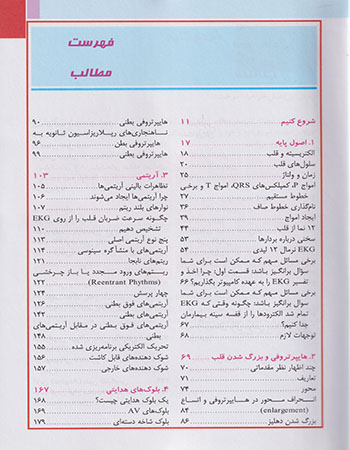 فهرست
مطالب
شروع کنیم ۱۱
۱. اصول پایه ۱۷
الکتریسیته و قلب ۱۸
سلول‌های قلب ۲۰
زمان و ولتاژ ۲۵
امواج P، کمپلکس‌های QRS، امواج T و برخی
خطوط مستقیم ۲۷
نام‌گذاری خطوط صاف ۳۶
ایجاد امواج ۳۹
۱۲ نما از قلب ۴۴
سخنی درباره بردارها ۵۳
EKG نرمال ۱۲ لیدی ۵۴
برخی مسائل مهم که ممکن است برای شما
سؤال برانگیز باشد: قسمت اول: چرا اخذ و
تفسیر EKG را به عهده کامپیوتر بگذاریم؟ ۶۶
برخی مسائل مهم که ممکن است برای شما
سؤال برانگیز باشد: چگونه وقتی که EKG
تمام شد الکترودها را از قفسه سینه بیمارمان
جدا کنیم؟ ۶۷
توجهات لازم ۶۸
۲. هایپرتروفی و بزرگ شدن قلب ۶۹
چند اظهار نظر مقدماتی ۷۰
تعاریف ۷۱
محور ۷۴
انحراف محور در هایپرتروفی و اتساع
(enlargement) ۸۴
بزرگ شدن دهلیز ۸۶
هایپرتروفی بطنی ۹۰
ناهنجاری‌های ریلاریزاسیون ثانویه به
هایپرتروفی بطن ۹۶
هایپرتروفی بطنی ۹۹
۳. آریتمی ۱۰۳
تظاهرات بالینی آریتمی‌ها ۱۰۵
چرا آریتمی‌ها ایجاد می‌شوند ۱۰۶
نوارهای بلند ریتم ۱۰۷
چگونه سرعت ضربان قلب را از روی EKG
تشخیص دهیم ۱۱۰
پنج نوع آریتمی اصلی ۱۱۳
آریتمی‌های با منشأ گره سینوسی ۱۱۴
ریتم‌های نابجا ۱۲۱
ریتم‌های ورود مجدد یا باز چرخشی
(Reentrant Rhythms) ۱۲۲
چهار پرسش ۱۲۴
آریتمی‌های فوق بطنی ۱۲۶
آریتمی‌های بطنی ۱۴۲
آریتمی‌های فوق بطنی در مقابل آریتمی‌های
بطنی ۱۴۸
تحریک الکتریکی برنامه‌ریزی شده ۱۵۵
شوک دهنده‌های قابل کاشت ۱۵۶
شوک دهنده‌های خارجی ۱۵۷
۴. بلوک‌های هدایتی ۱۶۷
یک بلوک هدایتی چیست؟ ۱۶۸
بلوک‌های AV ۱۶۹
بلوک شاخه دسته‌ای ۱۷۹